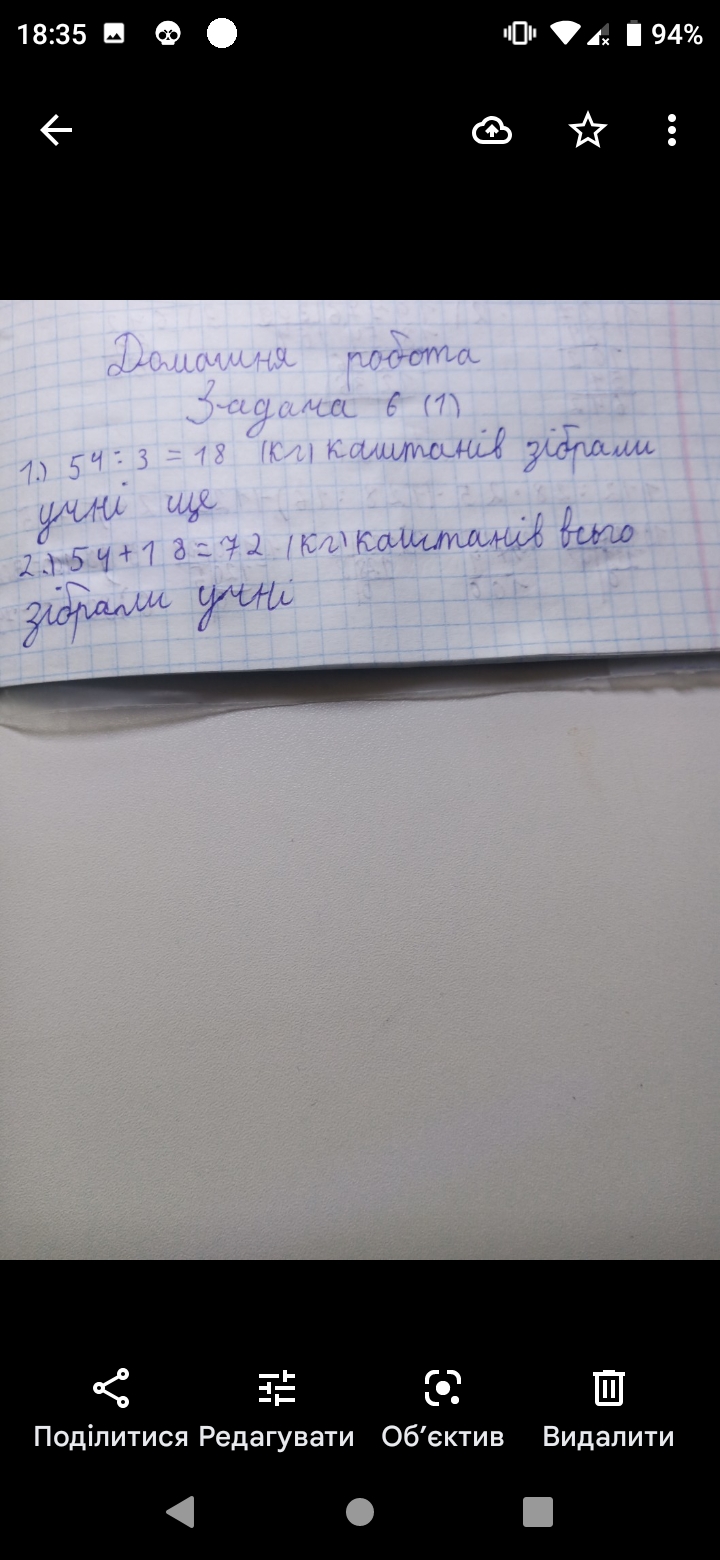 18:35
94%
Домашня робота
Задача 6 (1)
1.) 54÷3=18 (кг) каштанів зібрали
учні ще
2.) 54+18=72 (кг) каштанів всього
зібрали учні
Поділитися Редагувати Об’єктив Видалити